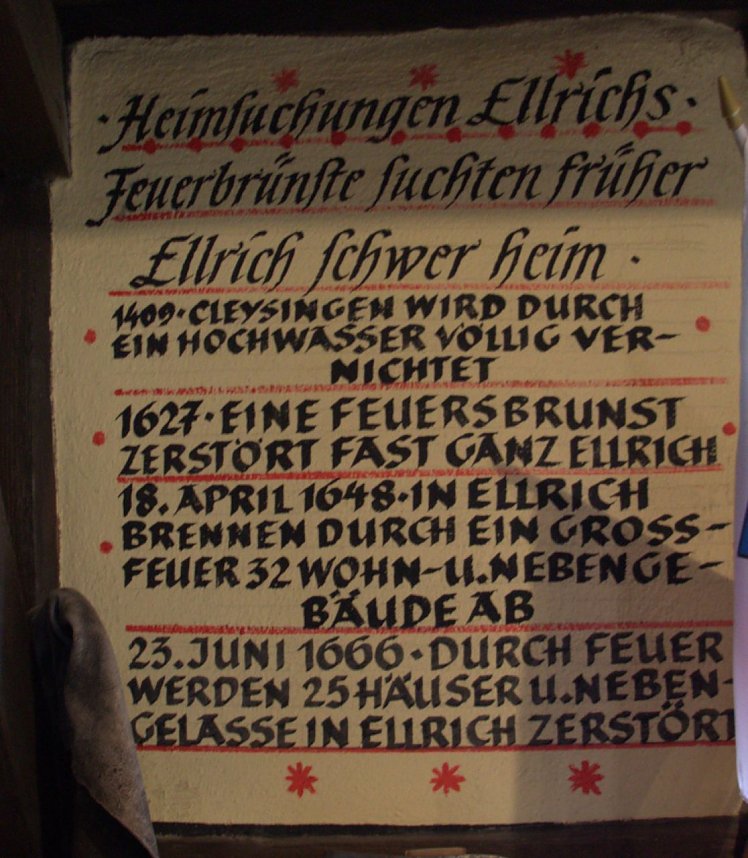 · Heimsuchungen Ellrichs ·
Feuerbrünste suchten früher
Ellrich schwer heim ·
1409 · CLEYSINGEN WIRD DURCH
EIN HOCHWASSER VÖLLIG VER-
NICHTET
1627 · EINE FEUERSBRUNST
ZERSTÖRT FAST GANZ ELLRICH
18. APRIL 1648 · IN ELLRICH
BRENNEN DURCH EIN GROSS-
FEUER 32 WOHN- U. NEBENGE-
BÄUDE AB
23. JUNI 1666 · DURCH FEUER
WERDEN 25 HÄUSER U. NEBEN-
GELASSE IN ELLRICH ZERSTÖRT